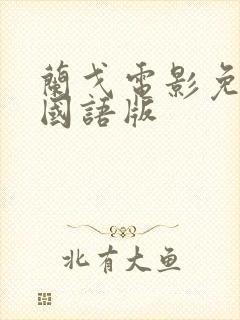 蘭戈電影免
國語版
北有大魚